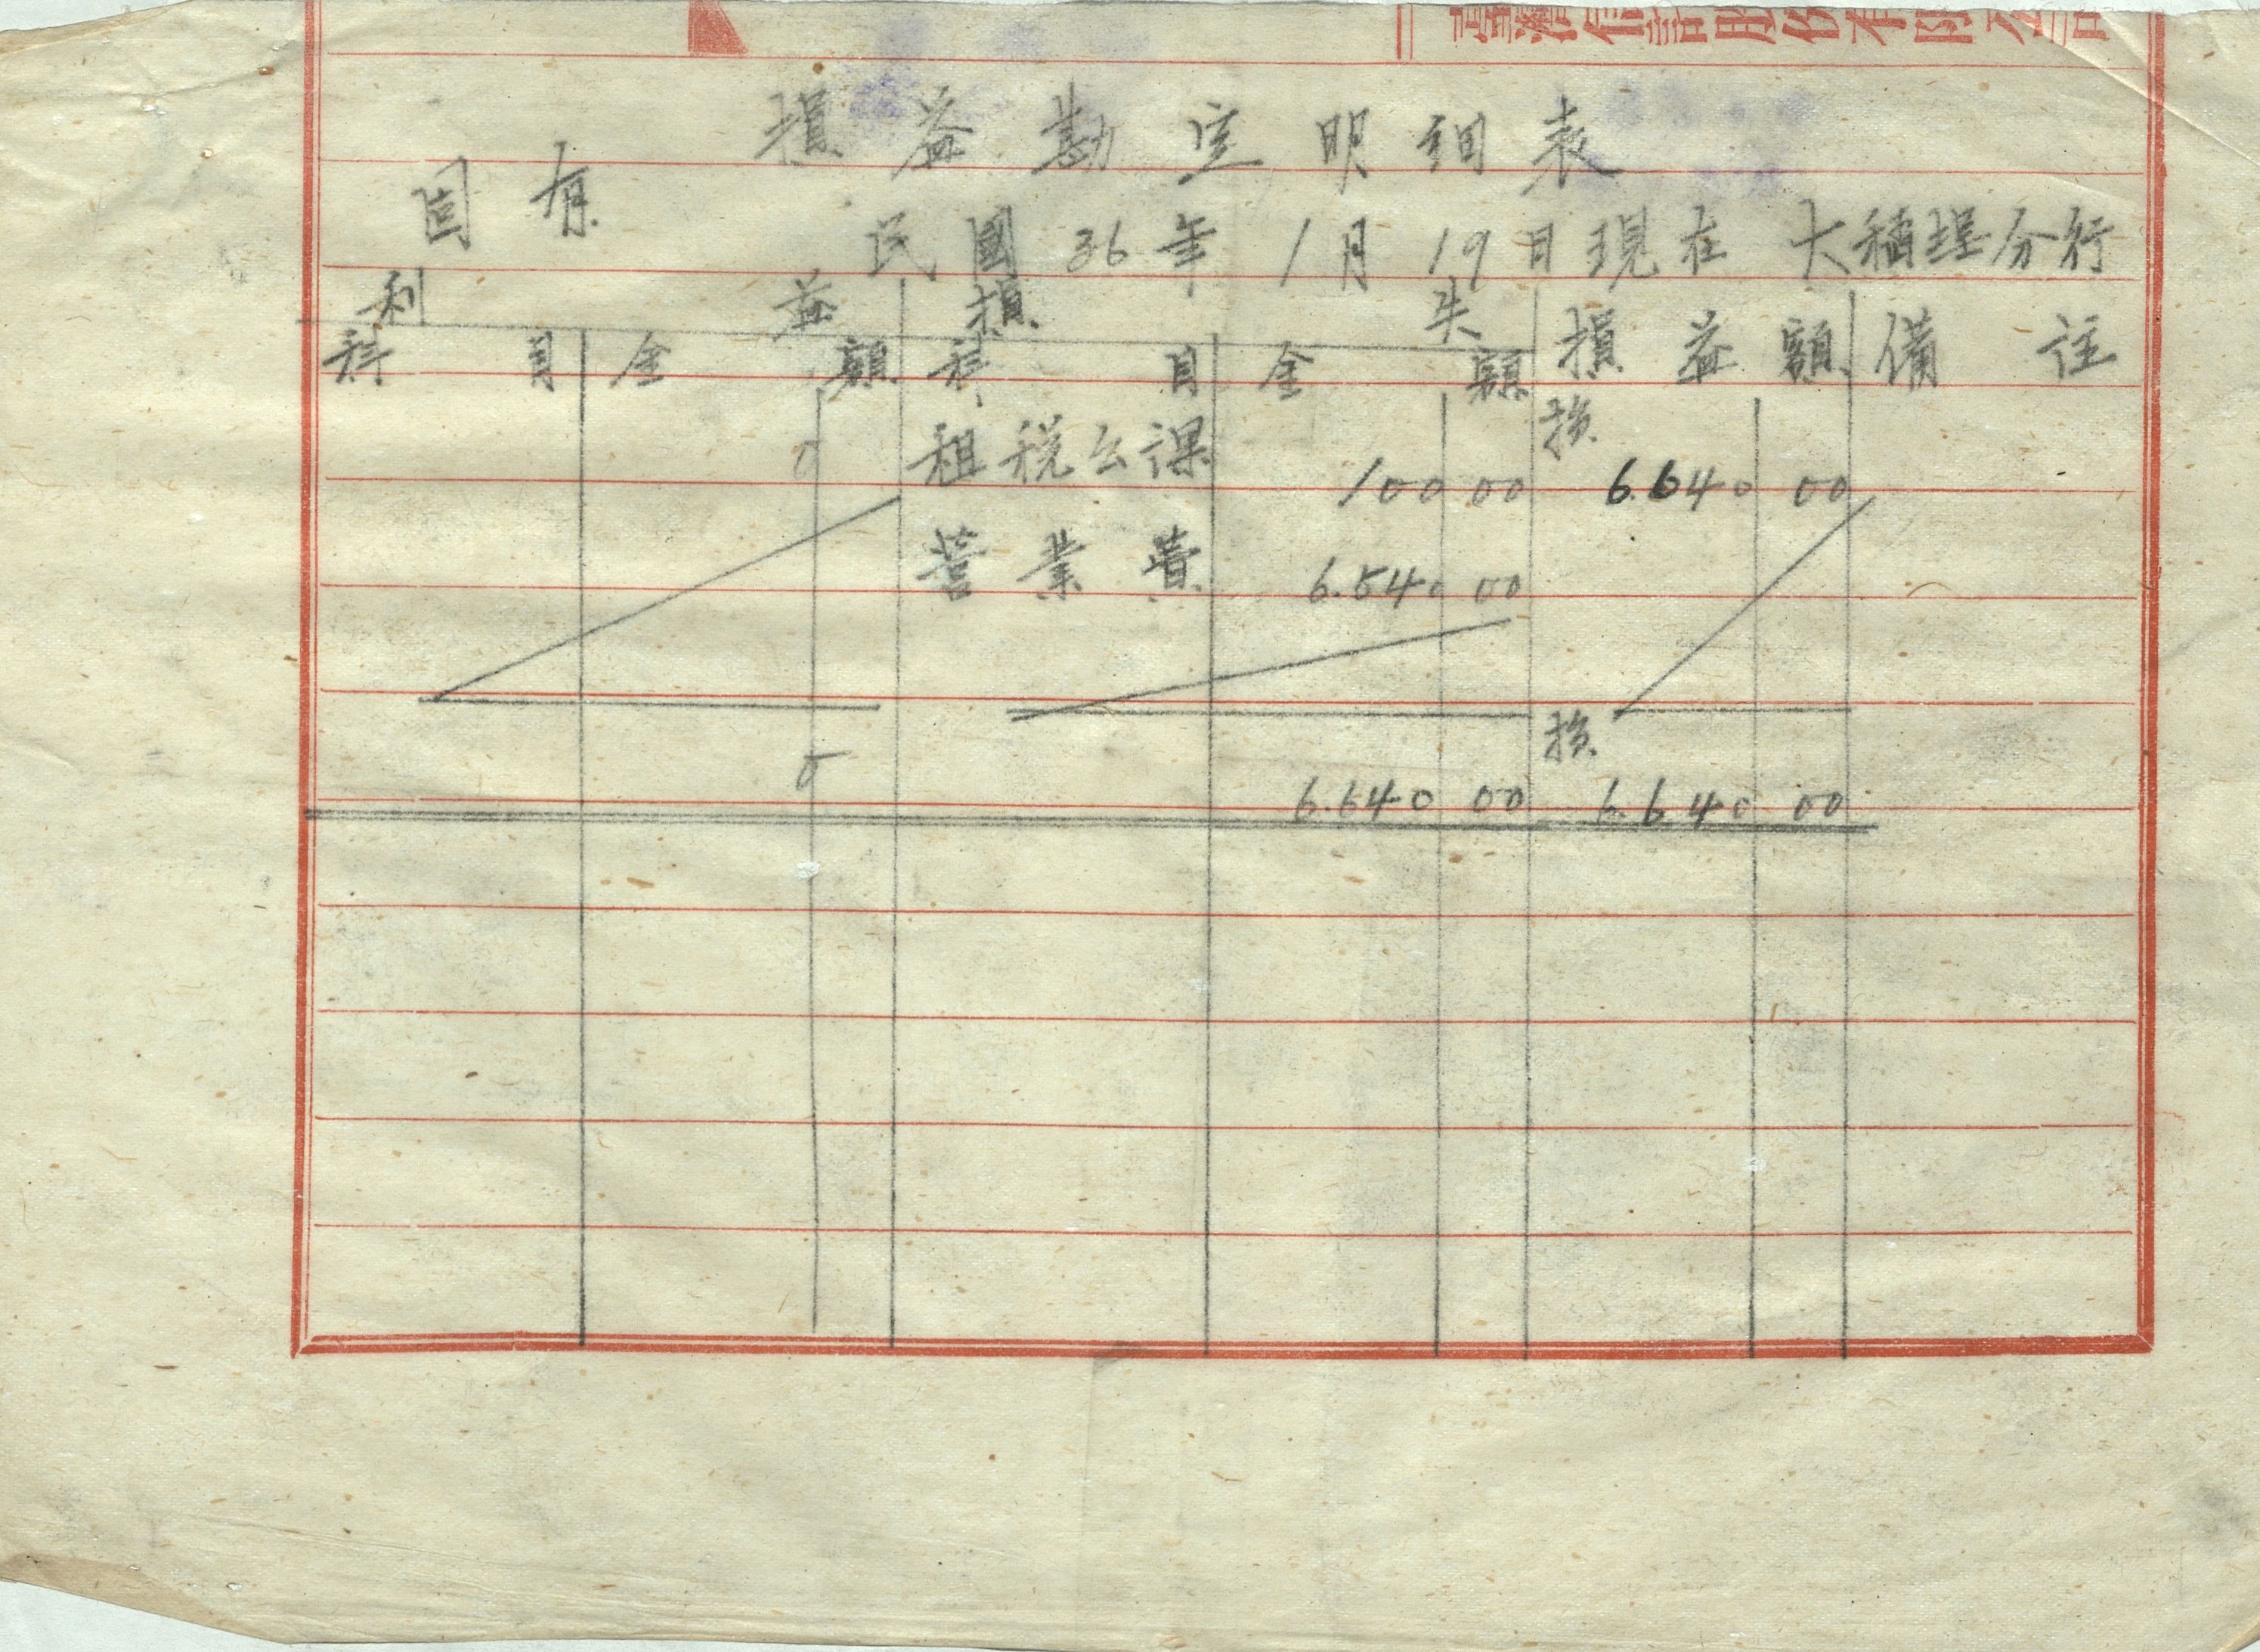 臺灣信託股份有限公司
損益勘定明細表
固有
民國36年1月19日現在 大稻埕分行
利益 損失 損益額 備註
科目 金額 科目 金額
0 租稅公課 100 00 損 6.640 00
營業費 6.540 00
0 6.640 00 損 6.640 00